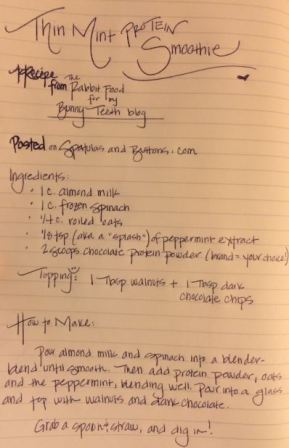 Thin Mint Protein
Smoothie
*Recipe
from The Rabbit Food
for my
Bunny Teeth blog
Posted on Spatulas and Buttons.com
Ingredients:
• 1 c. almond milk
• 1 c. frozen spinach
• 1/4 c. rolled oats
• 1/8 tsp (aka a "splash") of peppermint extract
• 2 scoops chocolate protein powder (brand = your choice!)
Topping: 1 Tbsp walnuts + 1 Tbsp dark
chocolate chips
How to Make:
Pour almond milk and spinach into a blender-
blend until smooth. Then add protein powder, oats
and the peppermint, blending well. Pour into a glass
and top with walnuts and dark chocolate.
Grab a spoon + straw, and dig in!